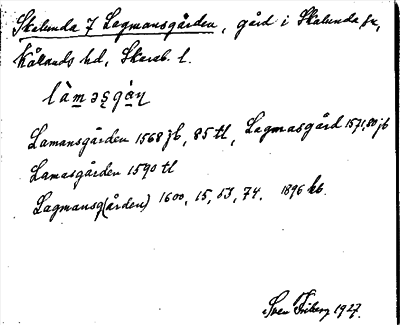 Skalunda 7 Lagmansgården, gård i Skalunda sn,
Kållands hd, Skarab. l.
làməsgàn
Lamansgården 1568 jb, 85 tl, Lagmasgård 1571, 80 jb
Lamasgården 1590 tl
Lagmansg(ården) 1600, 15, 53, 74. 1896 kb.
Sven Friberg 1927.